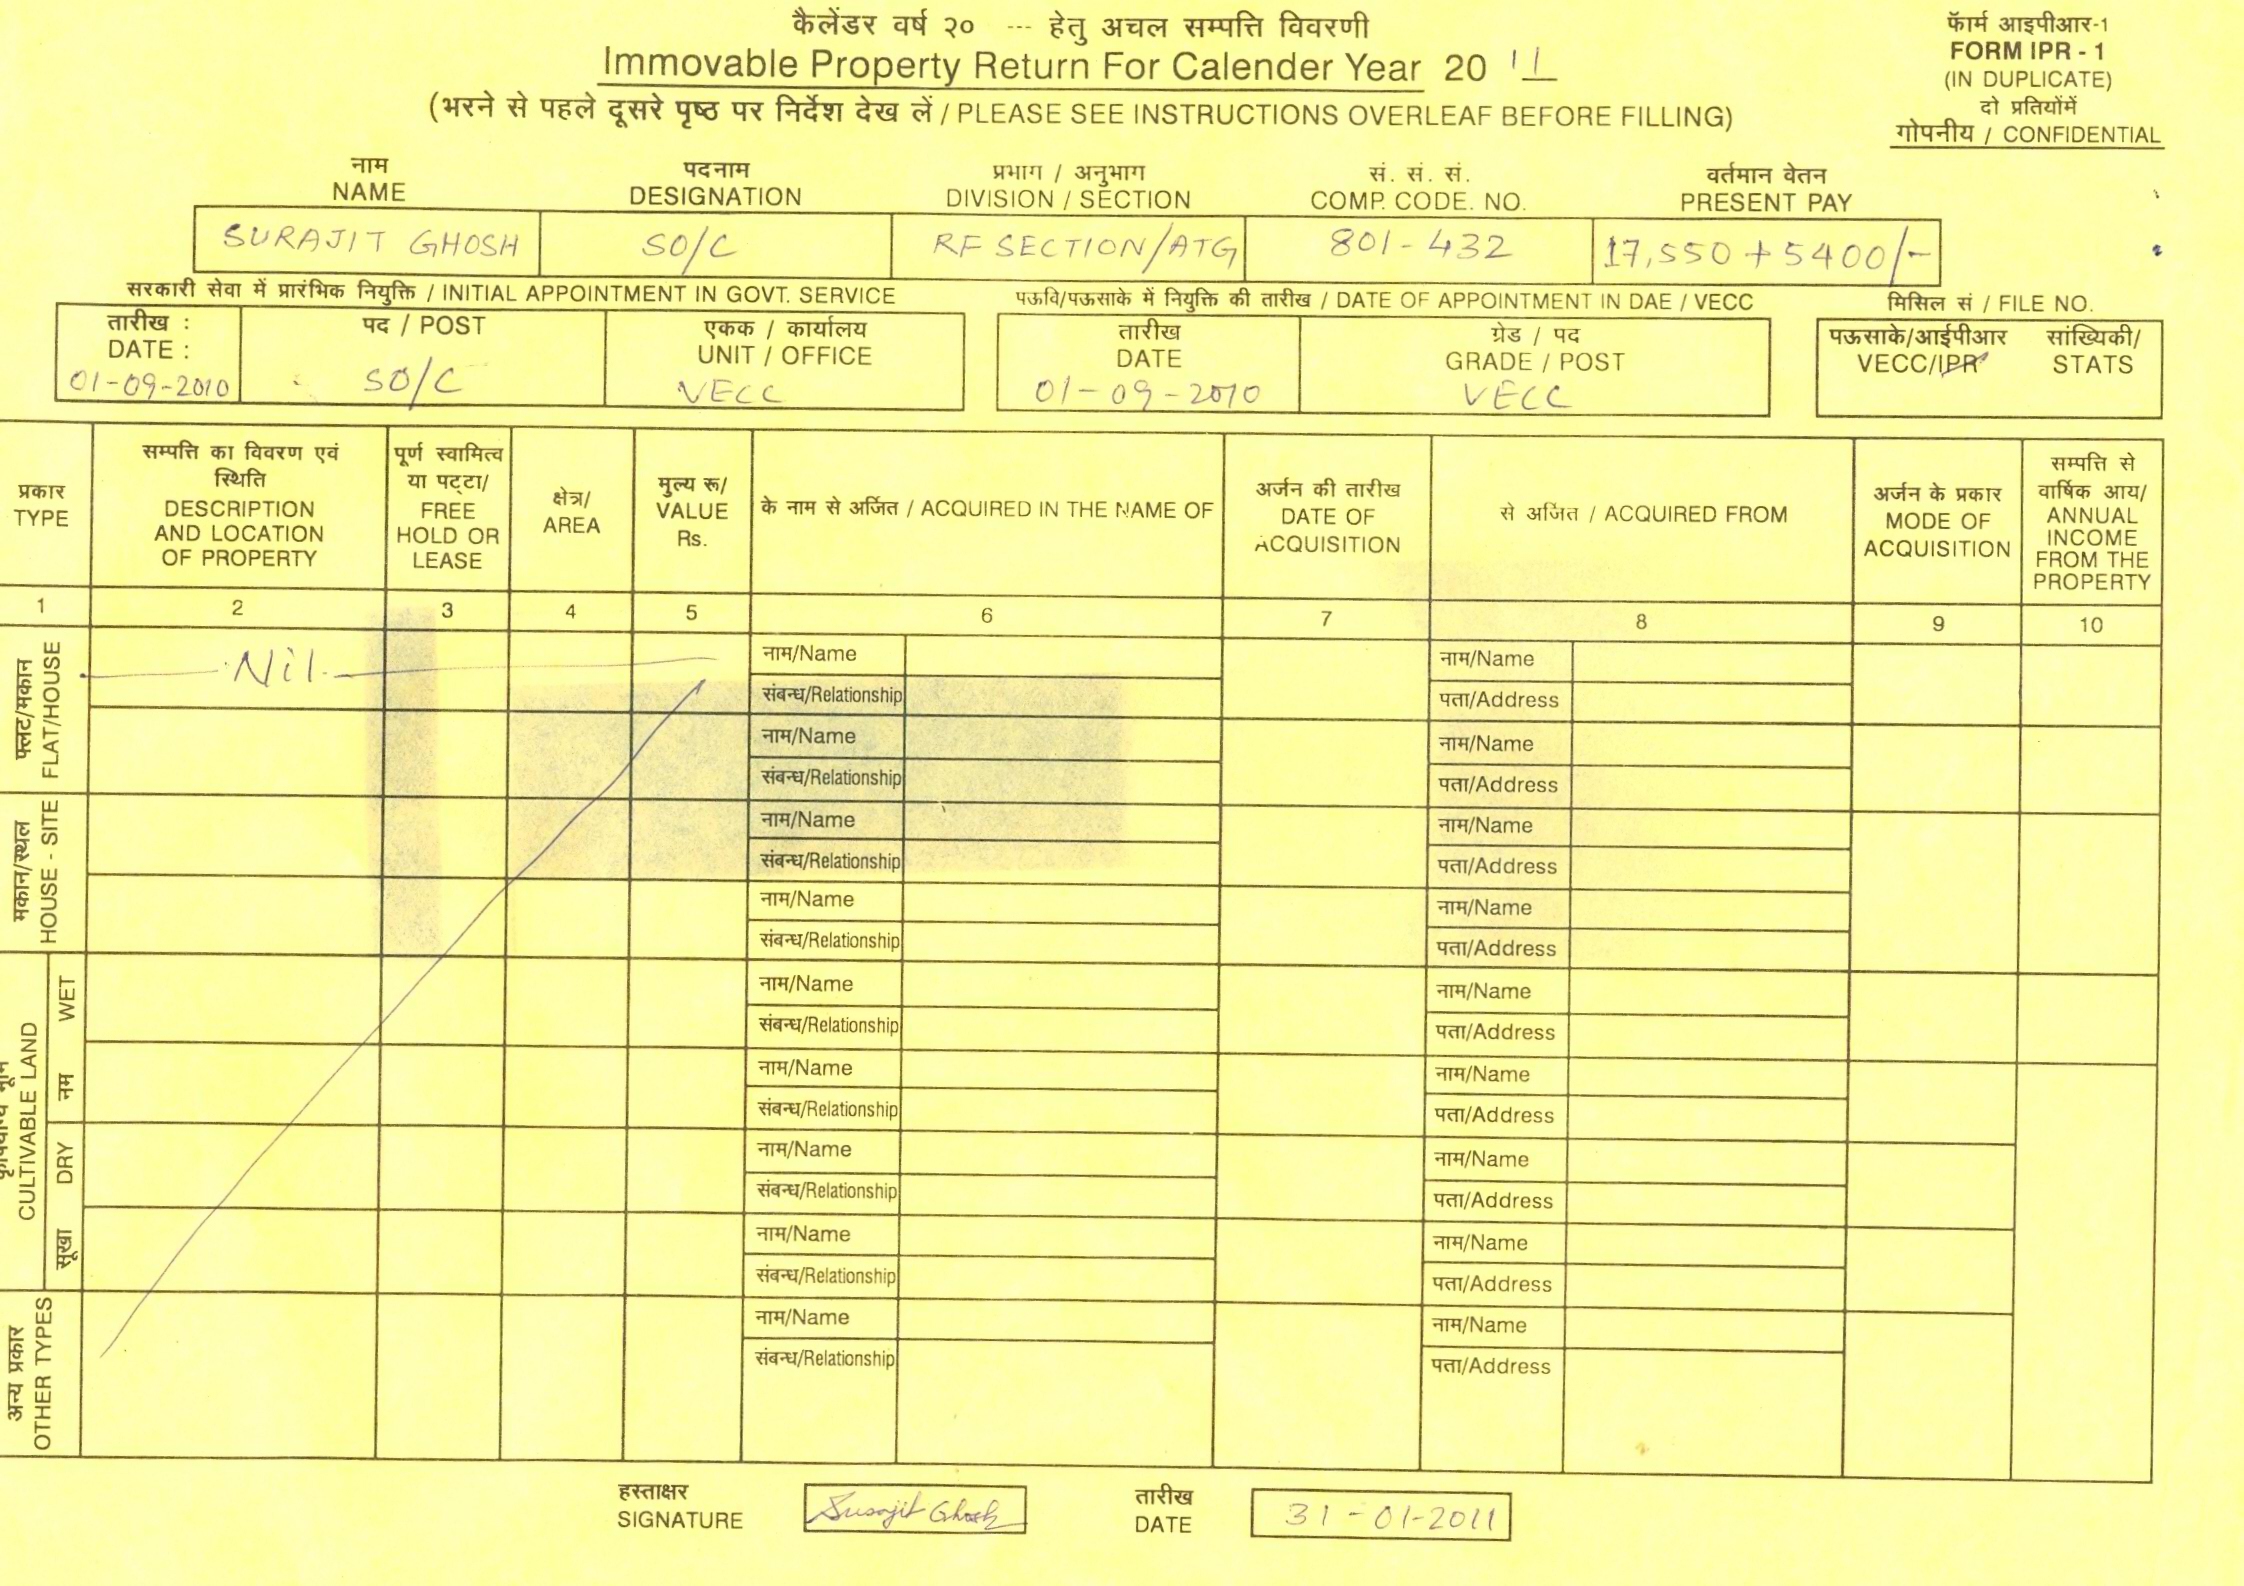 कैलेंडर वर्ष २० --- हेतु अचल सम्पत्ति विवरणी
Immovable Property Return For Calender Year 20 11
(भरने से पहले दूसरे पृष्ठ पर निर्देश देख लें / PLEASE SEE INSTRUCTIONS OVERLEAF BEFORE FILLING)
फॅार्म आइपीआर-1
FORM IPR - 1
(IN DUPLICATE)
दो प्रतियोंमें
गोपनीय / CONFIDENTIAL
नाम पदनाम प्रभाग / अनुभाग सं. सं. सं. वर्तमान वेतन
NAME DESIGNATION DIVISION / SECTION COMP. CODE. NO. PRESENT PAY
SURAJIT GHOSH SO/C RF SECTION/ATG 801-432 17,550 + 5400/-
सरकारी सेवा में प्रारंभिक नियुक्ति / INITIAL APPOINTMENT IN GOVT. SERVICE पऊवि/पऊसाके में नियुक्ति की तारीख / DATE OF APPOINTMENT IN DAE / VECC मिसिल सं / FILE NO.
तारीख : पद / POST एकक / कार्यालय तारीख ग्रेड / पद पऊसाके/आईपीआर सांख्यिकी/
DATE : UNIT / OFFICE DATE GRADE / POST VECC/IPR STATS
01-09-2010 SO/C VECC 01-09-2010 VECC
प्रकार
TYPE
सम्पत्ति का विवरण एवं
स्थिति
DESCRIPTION
AND LOCATION
OF PROPERTY
पूर्ण स्वामित्व
या पट्टा/
FREE
HOLD OR
LEASE
क्षेत्र/
AREA
मुल्य रू/
VALUE
Rs.
के नाम से अर्जित / ACQUIRED IN THE NAME OF
अर्जन की तारीख
DATE OF
ACQUISITION
से अर्जित / ACQUIRED FROM
अर्जन के प्रकार
MODE OF
ACQUISITION
सम्पत्ति से
वार्षिक आय/
ANNUAL
INCOME
FROM THE
PROPERTY
1 2 3 4 5 6 7 8 9 10
फ्लट/मकान
FLAT/HOUSE
Nil
नाम/Name नाम/Name
संबन्ध/Relationship पता/Address
नाम/Name नाम/Name
संबन्ध/Relationship पता/Address
मकान/स्थल
HOUSE - SITE
नाम/Name नाम/Name
संबन्ध/Relationship पता/Address
नाम/Name नाम/Name
संबन्ध/Relationship पता/Address
CULTIVABLE LAND
नम WET
नाम/Name नाम/Name
संबन्ध/Relationship पता/Address
नाम/Name नाम/Name
संबन्ध/Relationship पता/Address
सूखा DRY
नाम/Name नाम/Name
संबन्ध/Relationship पता/Address
नाम/Name नाम/Name
संबन्ध/Relationship पता/Address
अन्य प्रकार
OTHER TYPES
नाम/Name नाम/Name
संबन्ध/Relationship पता/Address
हस्ताक्षर तारीख
SIGNATURE Surajit Ghosh DATE 31-01-2011